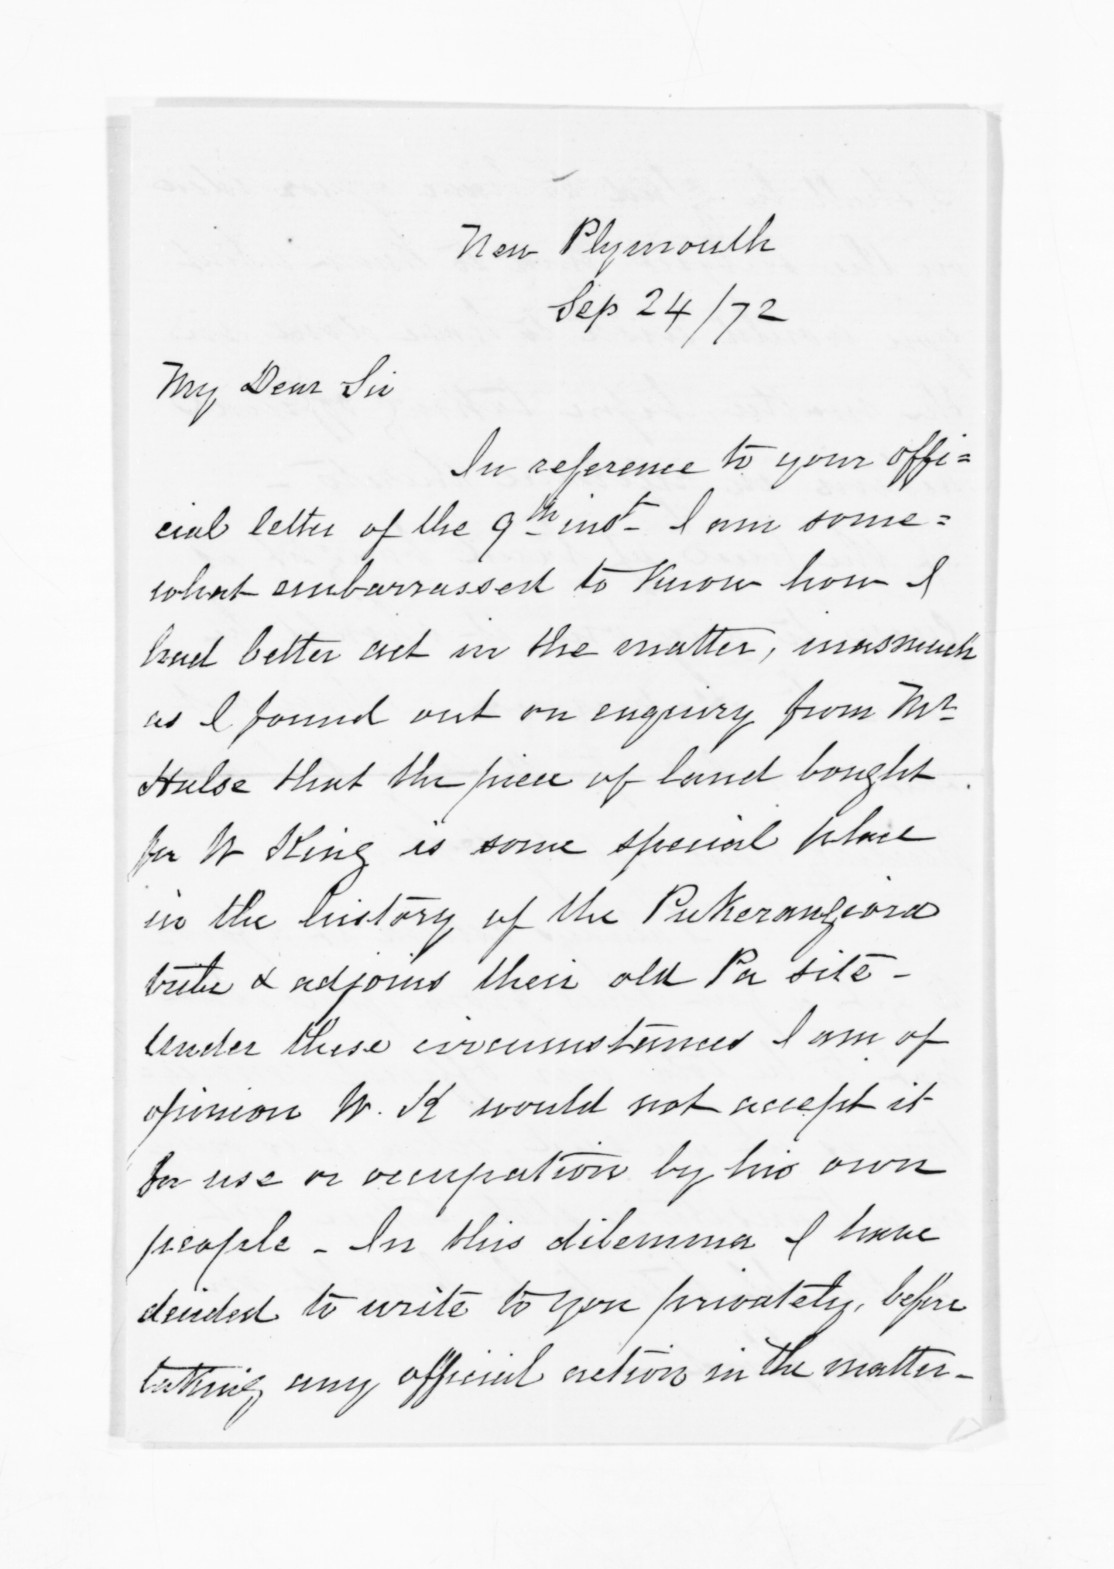 New Plymouth
Sep 24/72
My Dear Sir
In reference to your offi=
cial letter of the 9th inst- I am some=
what embarrassed to know how I
had better act in the matter, inasmuch
as I found out on enquiry from Mr
Hulse that the piece of land bought
for W King is some special place
in the history of the Pukerangiora
tribe & adjoins their old Pa site -
Under these circumstances I am of
opinion W. K would not accept it
for use or occupation by his own
people - In this dilemma I have
decided to write to you privately, before
taking any official action in the matter -